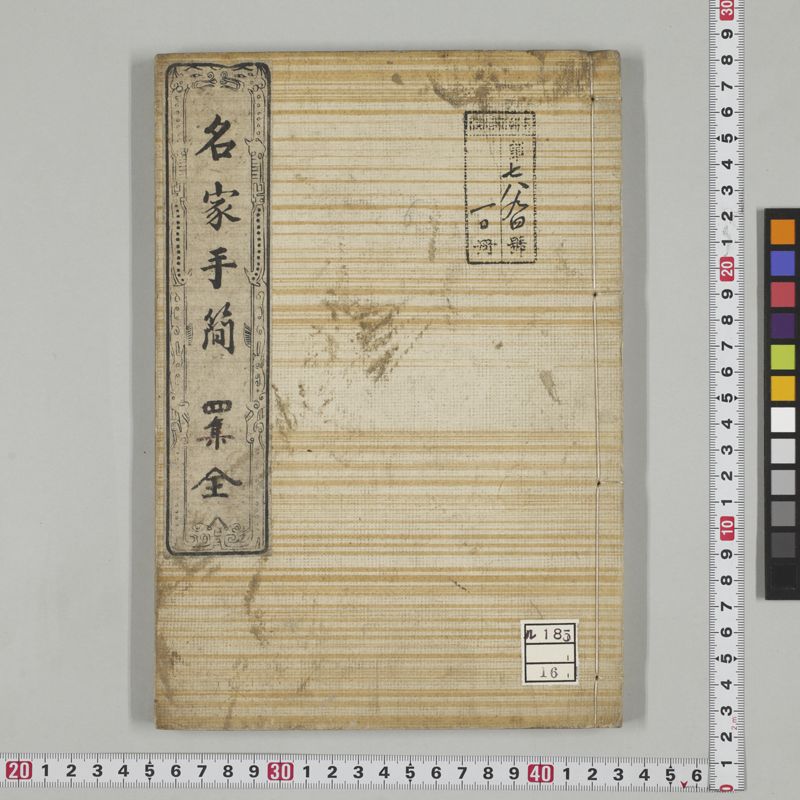 名家手簡 四集 全
第七八九四號
一〇冊
ル 185
1
16
20 1 2 3 4 5 6 7 8 9 30 1 2 3 4 5 6 7 8 9 40 1 2 3 4 5 6
30 9 8 7 6 5 4 3 2 1 20 9 8 7 6 5 4 3 2 1 10 9 8 7 6 5 4 3 2 1 0